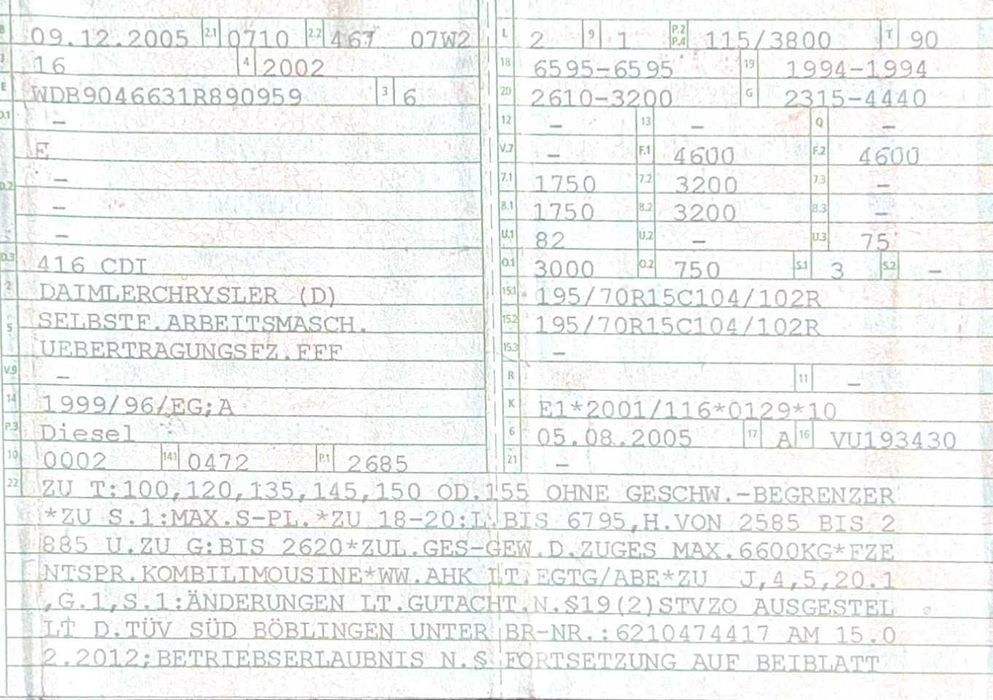 B 09.12.2005 2.1 0710 2.2 467 07W2
J 16 4 2002
E WDB9046631R890959 3 6
D.1 –
E
D.2 –
–
–
D.3 416 CDI
2 DAIMLERCHRYSLER (D)
5 SELBSTF.ARBEITSMASCH.
UEBERTRAGUNGSFZ.FFF
V.9 –
14 1999/96/EG;A
P.3 Diesel
10 0002 14.1 0472 P.1 2685
L 2 9 1 P.2 P.4 115/3800 T 90
18 6595-6595 19 1994-1994
20 2610-3200 G 2315-4440
12 – 13 – Q –
V.7 – F.1 4600 F.2 4600
7.1 1750 7.2 3200 7.3 –
8.1 1750 8.2 3200 8.3 –
U.1 82 U.2 – U.3 75
O.1 3000 O.2 750 S.1 3 S.2 –
15.1 195/70R15C104/102R
15.2 195/70R15C104/102R
15.3 –
R 11 –
K E1*2001/116*0129*10
6 05.08.2005 17 A 16 VU193430
21 –
22 ZU T:100,120,135,145,150 OD.155 OHNE GESCHW.-BEGRENZER
*ZU S.1:MAX.S-PL.*ZU 18-20:L.BIS 6795,H.VON 2585 BIS 2
885 U.ZU G:BIS 2620*ZUL.GES-GEW.D.ZUGES MAX.6600KG*FZE
NTSPR.KOMBILIMOUSINE*WW.AHK LT.EGTG/ABE*ZU J,4,5,20.1
,G.1,S.1:ÄNDERUNGEN LT.GUTACHT.N.§19(2)STVZO AUSGESTEL
LT D.TÜV SÜD BÖBLINGEN UNTER BR-NR.:6210474417 AM 15.0
2.2012;BETRIEBSERLAUBNIS N.§ FORTSETZUNG AUF BEIBLATT